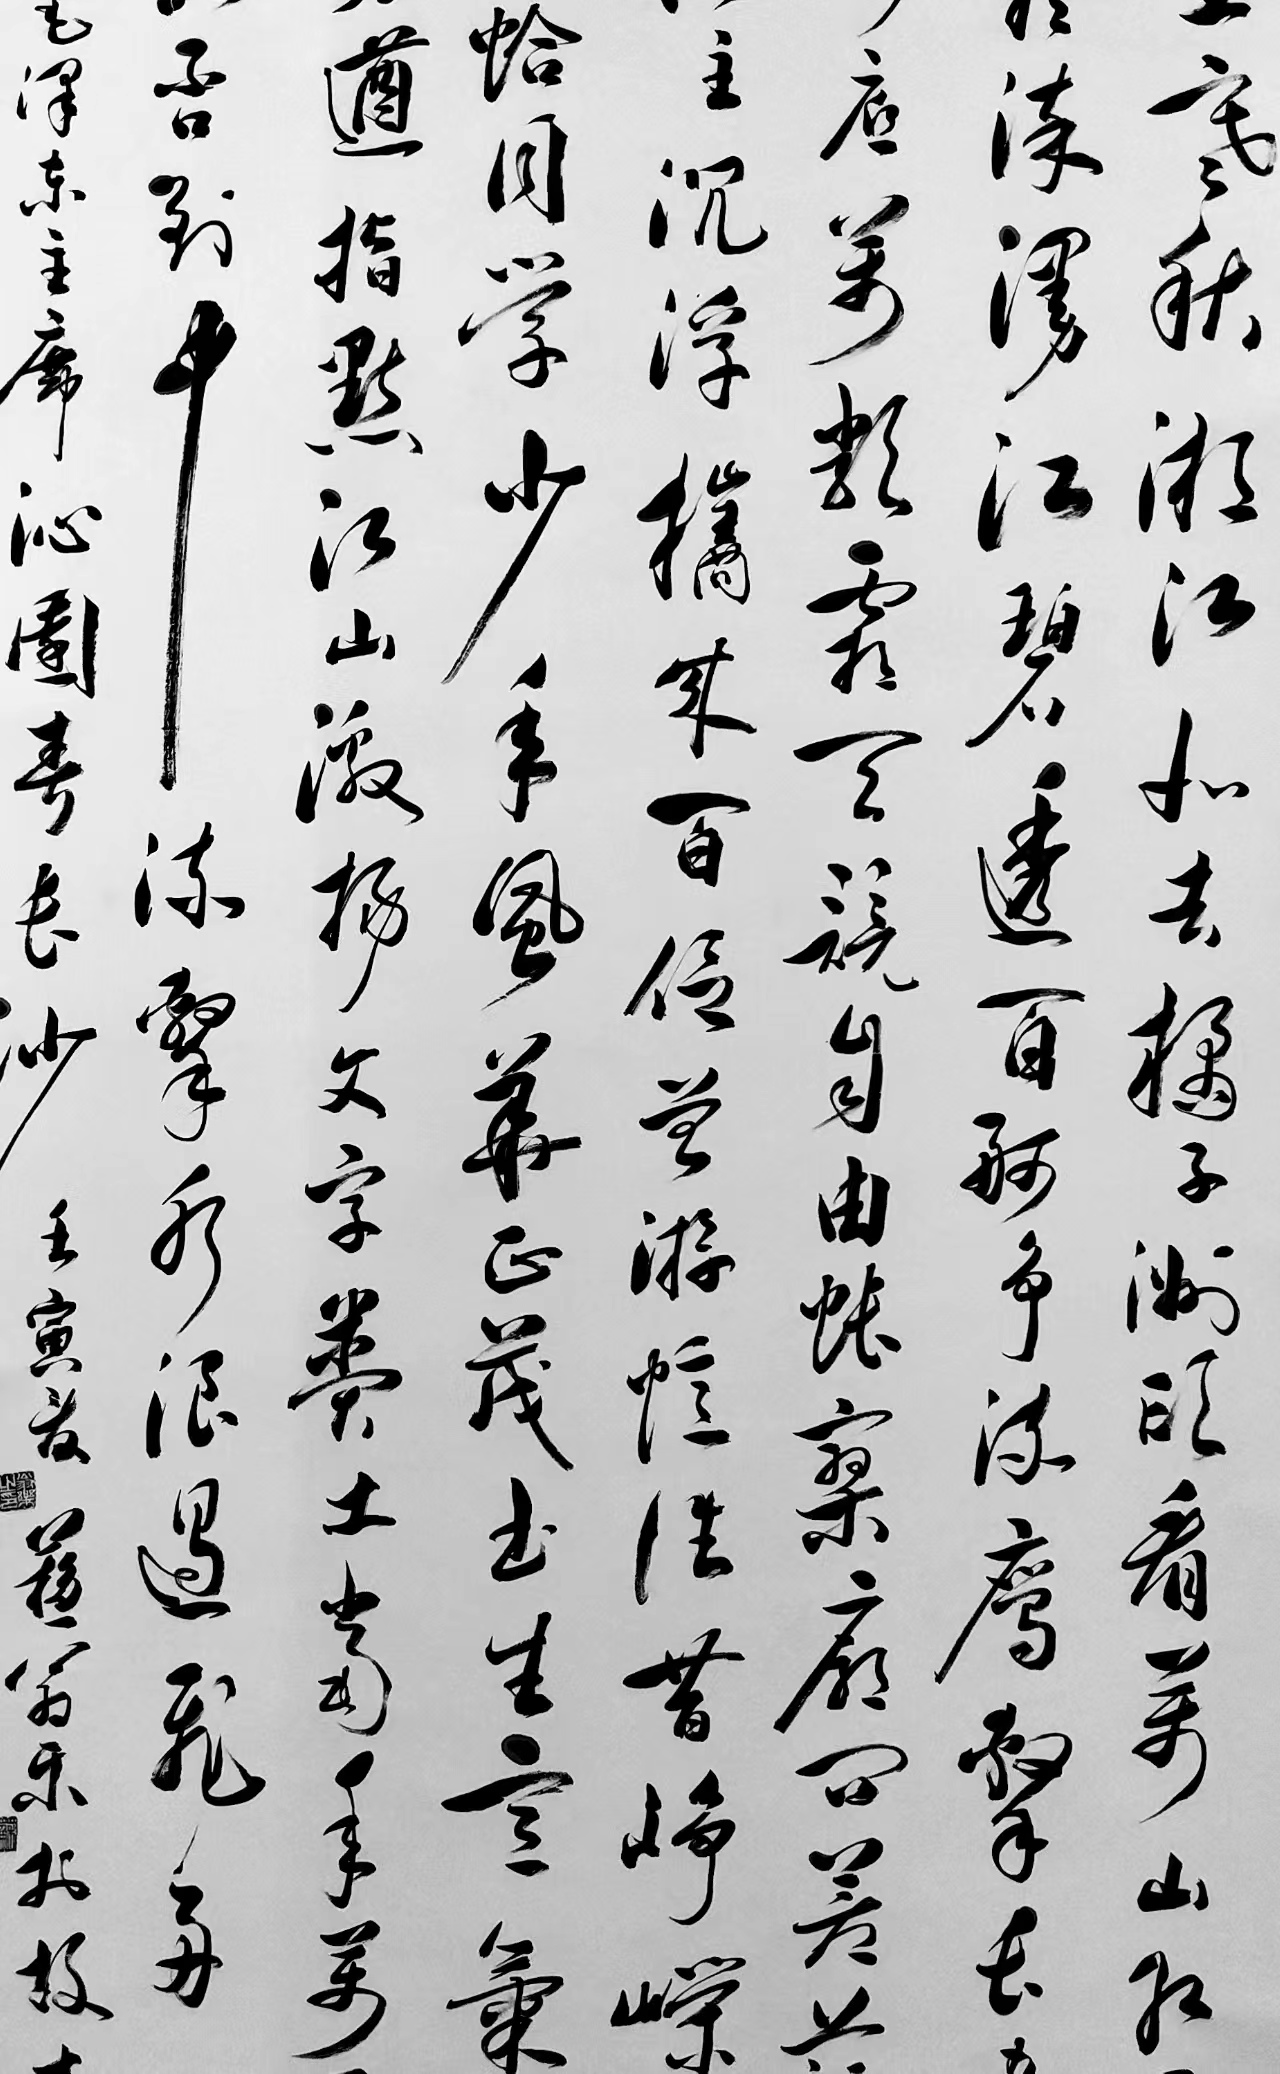 寒秋湘江北去橘子洲头看万山红
漫江碧透百舸争流鹰击长
万类霜天竞自由怅寥廓问苍茫
主沉浮携来百侣曾游忆往昔峥嵘
恰同学少年风华正茂书生意气
遒指点江山激扬文字粪土当年万
否到中流击水浪遏飞舟
毛泽东主席沁园春长沙 壬寅夏 翁乐于